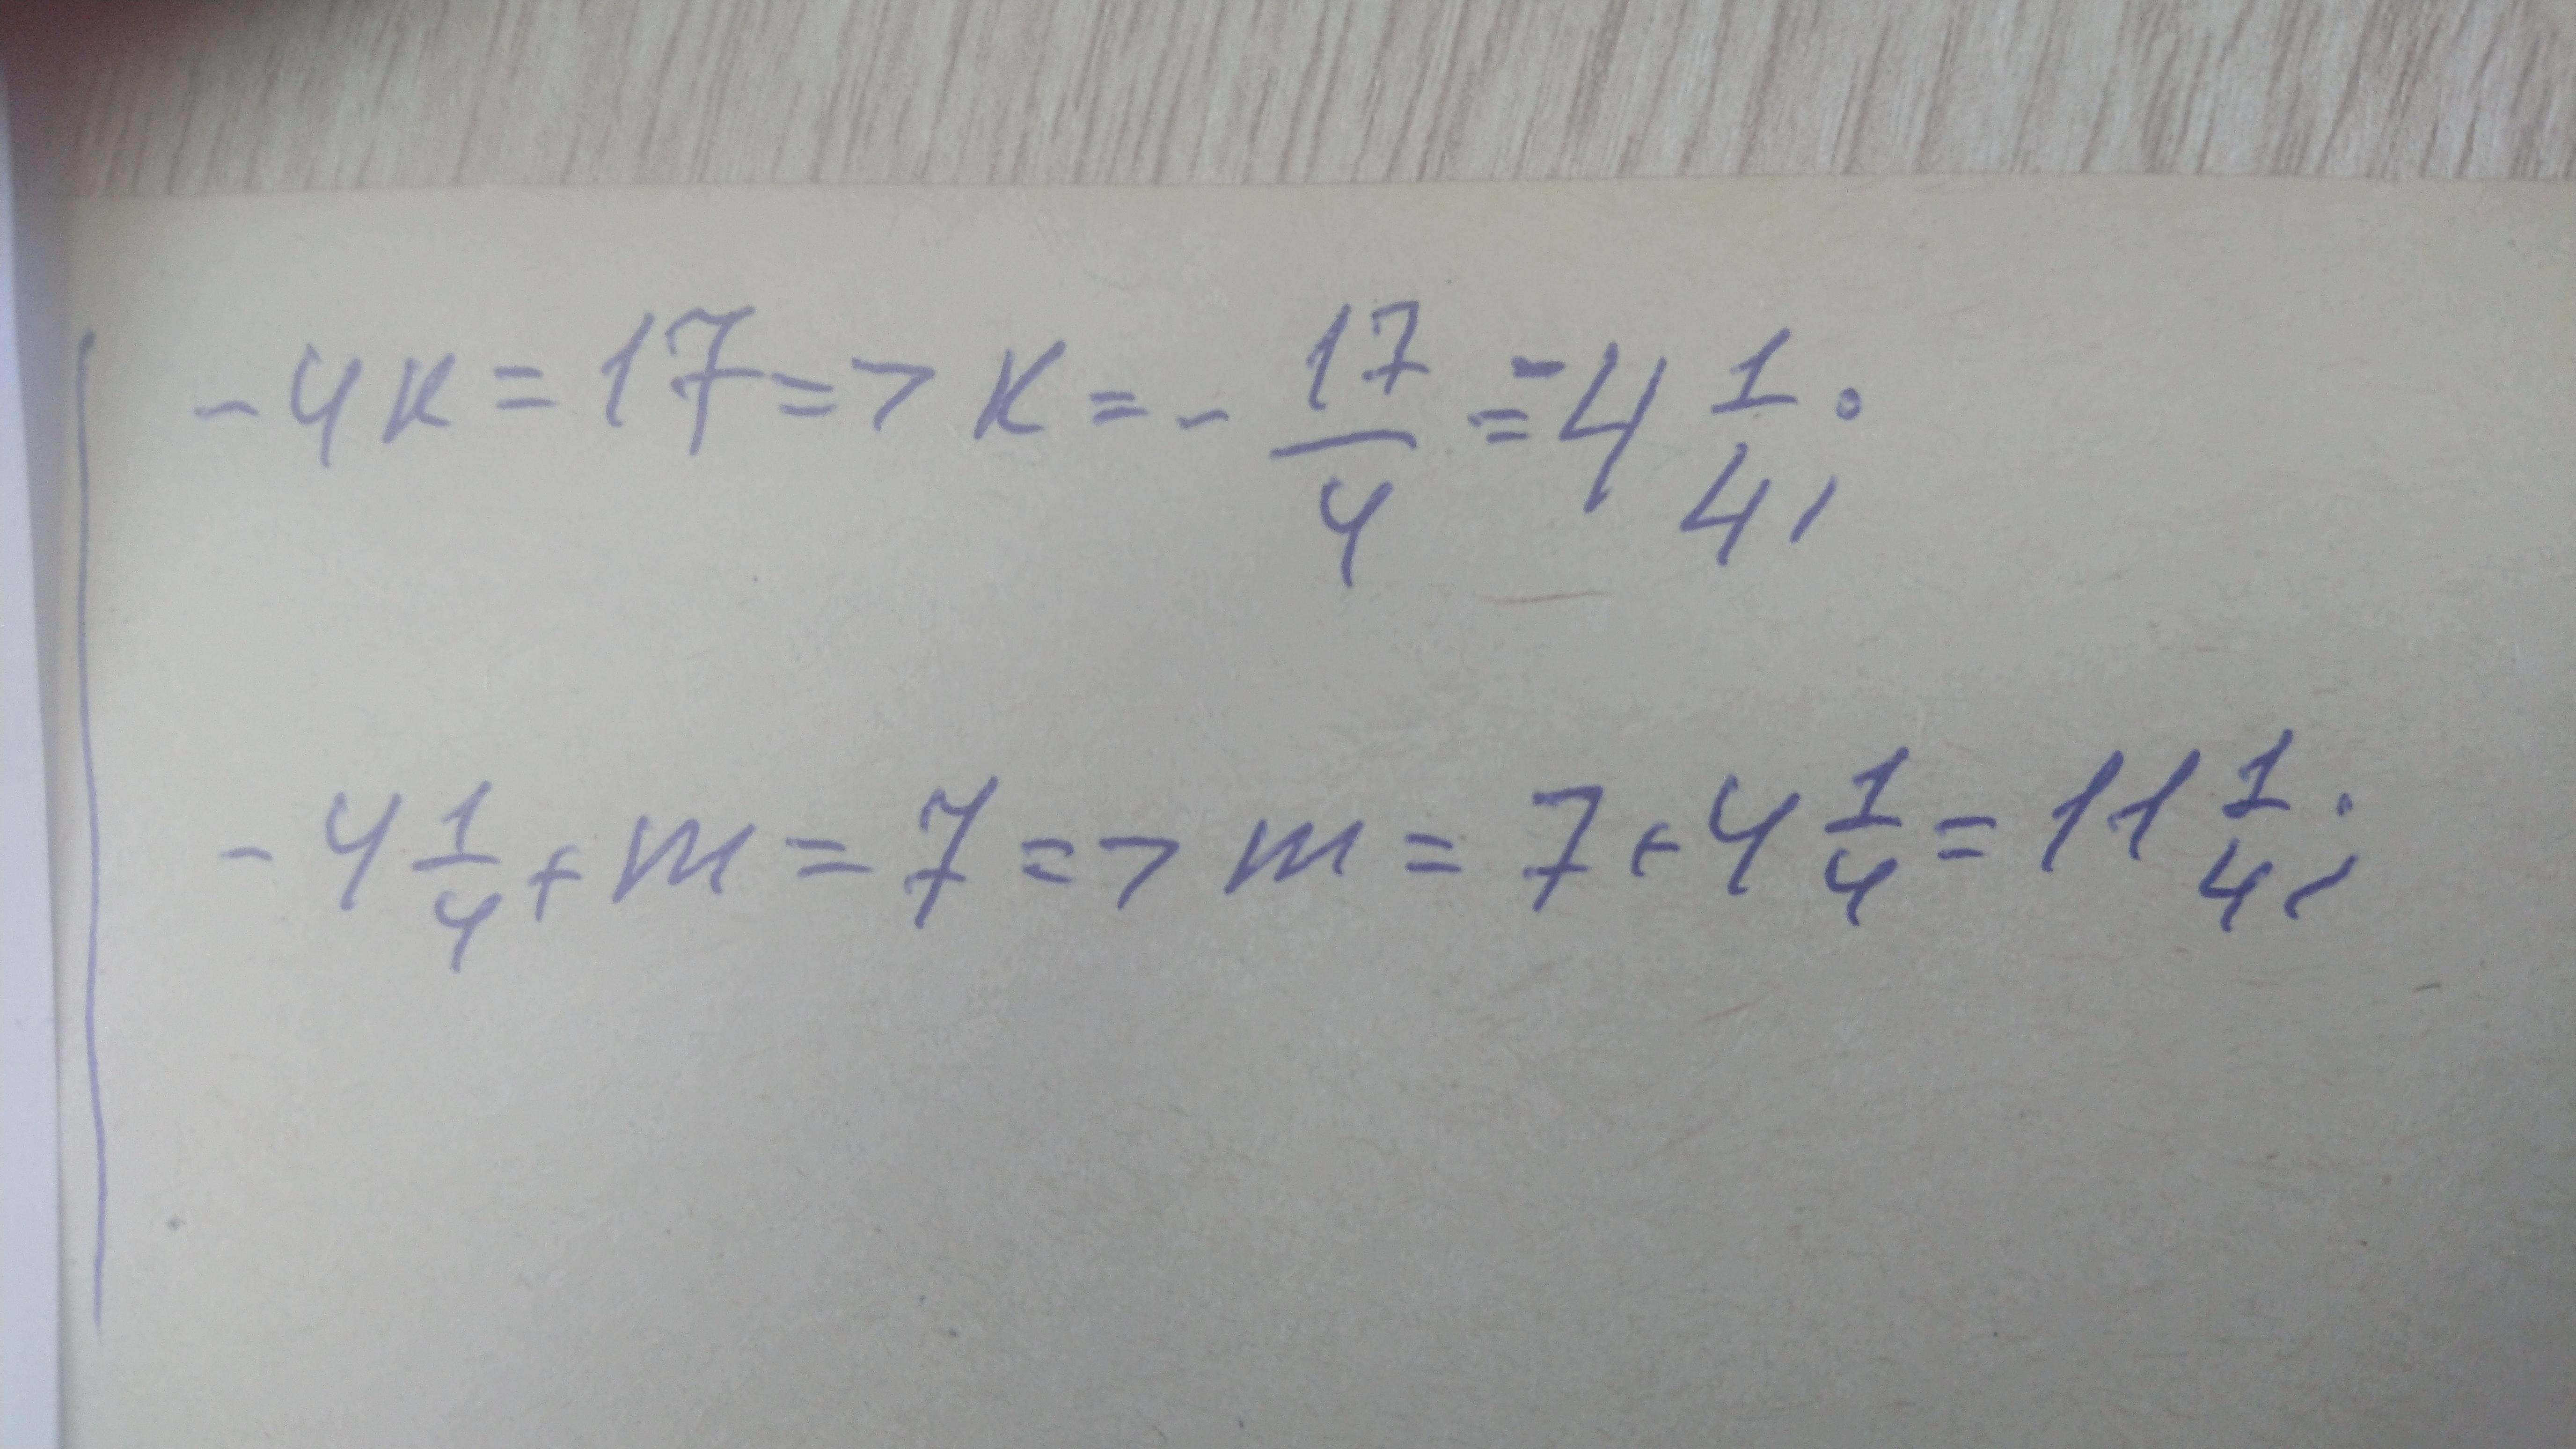 -4к=17=>к=-17/4=-4 1/4;
-4 1/4+m=7=>m=7+4 1/4=11 1/4;